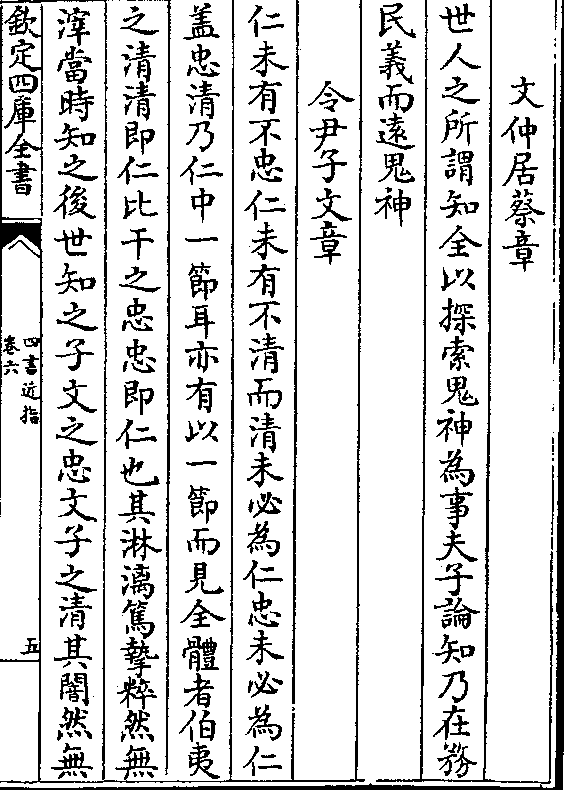 文仲居蔡章
世人之所謂知全以探索鬼神為事夫子論知乃在務
民義而遠鬼神
令尹子文章
仁未有不忠仁未有不清而清未必為仁忠未必為仁
盖忠清乃仁中一節耳亦有以一節而見全體者伯夷
之清清即仁比干之忠忠即仁也其淋漓篤摯粹然無
滓當時知之後世知之子文之忠文子之清其闇然無
欽定四庫全書
四書近指
卷六
五